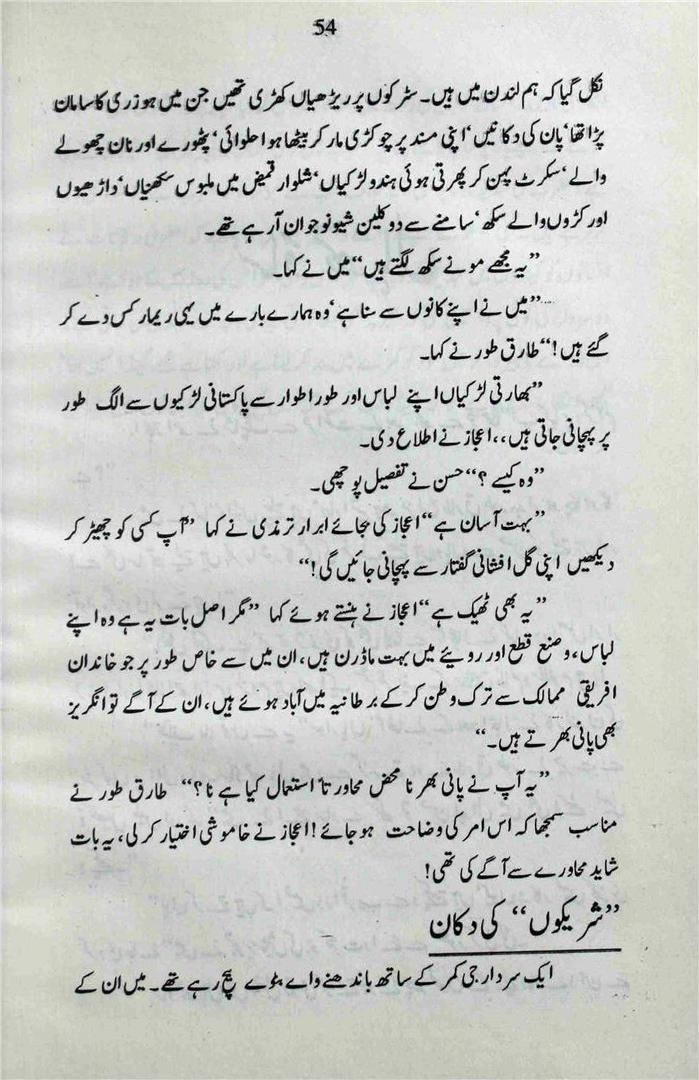 54
نکل گیا کہ ہم لندن میں ہیں۔ سڑکوں پر ریڑھیاں کھڑی تھیں جن میں ہوزری کا سامان
پڑا تھا‘ پان کی دکانیں‘ اپنی مسند پر چوکڑی مار کر بیٹھا ہوا حلوائی‘ پٹھورے اور نان چھولے
والے‘ سکرٹ پہن کر پھرتی ہوئی ہندو لڑکیاں‘ شلوار قمیض میں ملبوس سکھنیاں‘ داڑھیوں
اور کڑوں والے سکھ‘ سامنے سے دو کلین شیو نوجوان آ رہے تھے۔
”یہ مجھے مونے سکھ لگتے ہیں“ میں نے کہا۔
”میں نے اپنے کانوں سے سنا ہے‘ وہ ہمارے بارے میں یہی ریمارکس دے کر
گئے ہیں!“ طارق طور نے کہا۔
”بھارتی لڑکیاں اپنے لباس اور طور اطوار سے پاکستانی لڑکیوں سے الگ طور
پر پہچانی جاتی ہیں،، اعجاز نے اطلاع دی۔
”وہ کیسے ؟“ حسن نے تفصیل پوچھی۔
”بہت آسان ہے“ اعجاز کی بجائے ابرار ترمذی نے کہا ”آپ کسی کو چھیڑ کر
دیکھیں اپنی گل افشانی گفتار سے پہچانی جائیں گی!“
”یہ بھی ٹھیک ہے“ اعجاز نے ہنستے ہوئے کہا ”مگر اصل بات یہ ہے وہ اپنے
لباس، وضع قطع اور رویئے میں بہت ماڈرن ہیں، ان میں سے خاص طور پر جو خاندان
افریقی ممالک سے ترک وطن کر کے برطانیہ میں آباد ہوئے ہیں، ان کے آگے تو انگریز
بھی پانی بھرتے ہیں۔“
”یہ آپ نے پانی بھرنا محض محاورتاً استعمال کیا ہے نا؟“ طارق طور نے
مناسب سمجھا کہ اس امر کی وضاحت ہو جائے! اعجاز نے خاموشی اختیار کر لی، یہ بات
شاید محاورے سے آگے کی تھی!
”شریکوں“ کی دکان
ایک سردار جی کمر کے ساتھ باندھنے والے بٹوے بیچ رہے تھے۔ میں ان کے